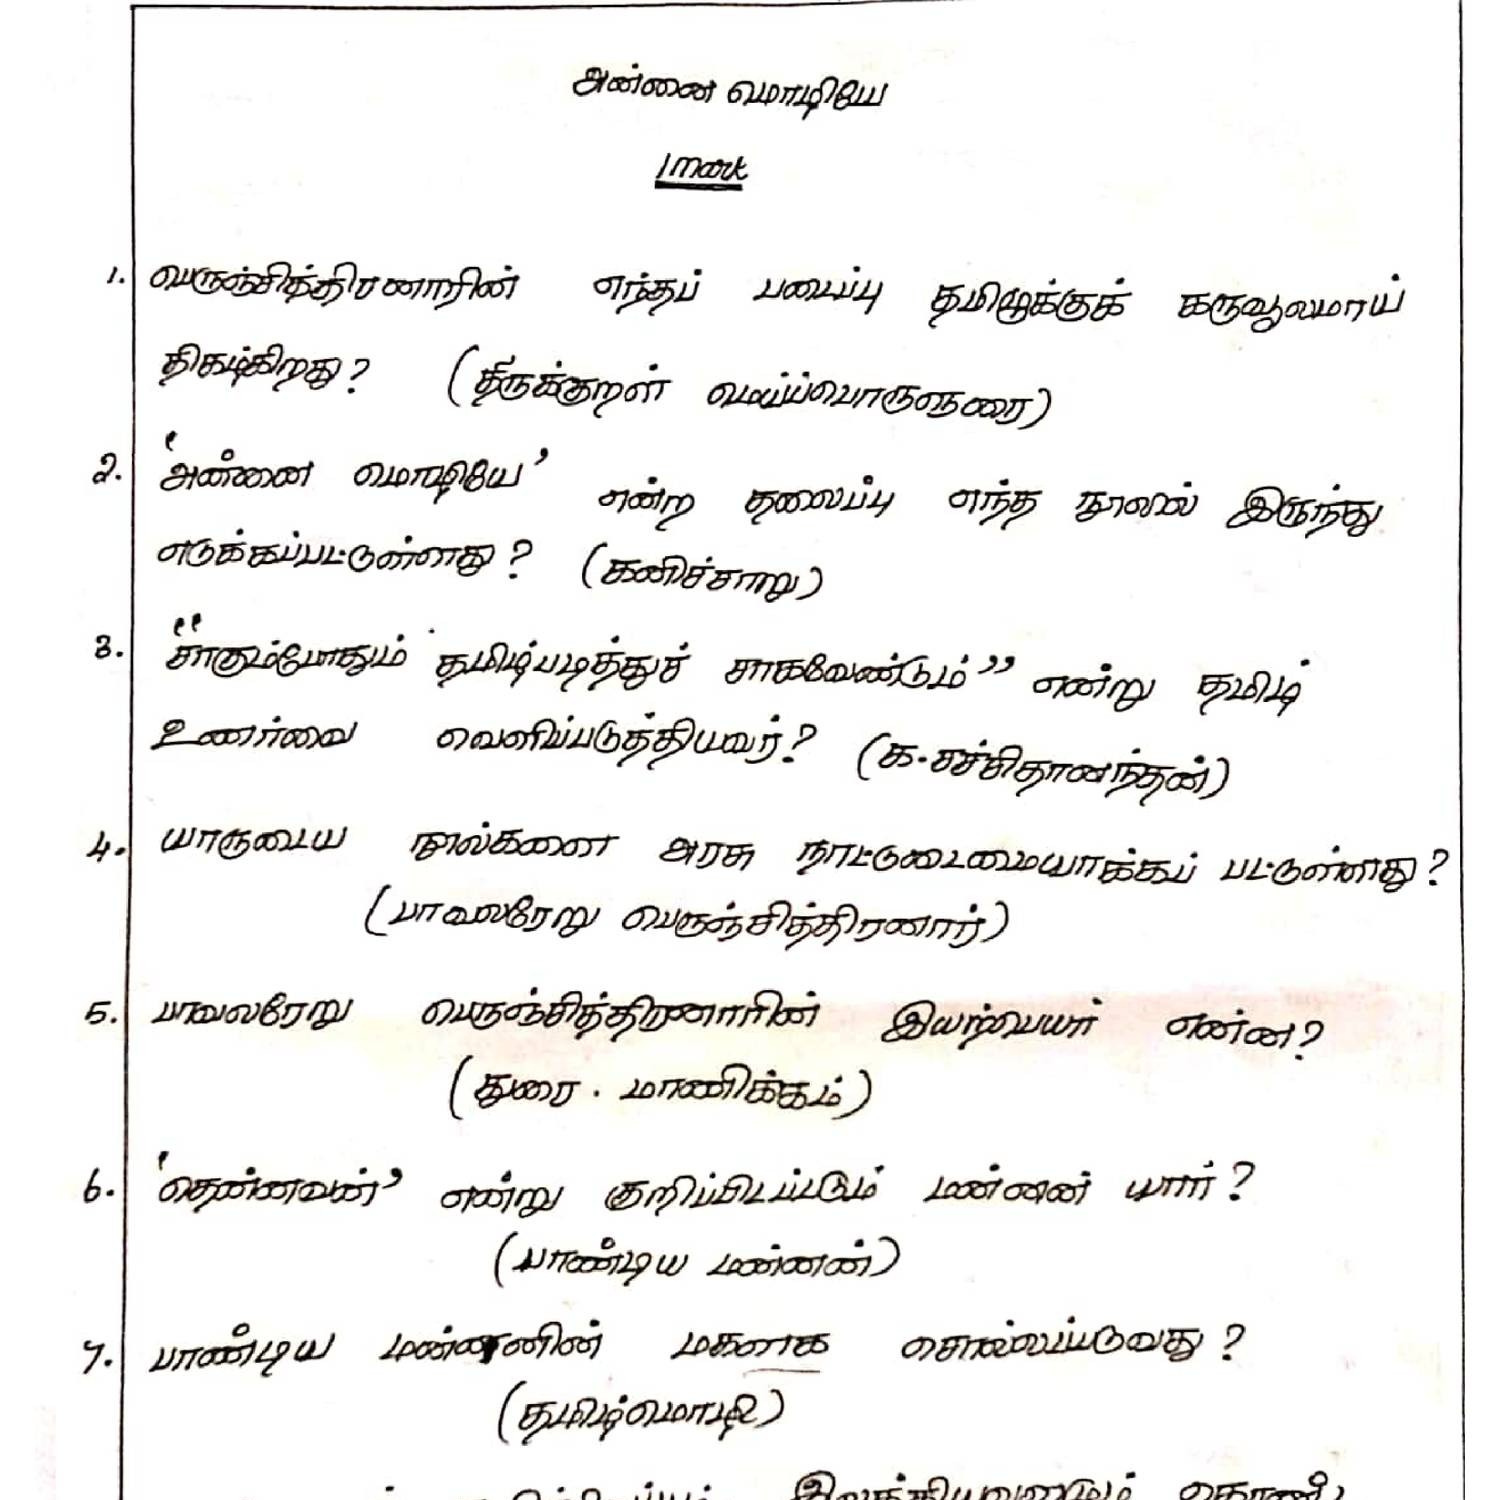 அன்னை மொழியே
1 mark
1. பெருஞ்சித்திரனாரின் எந்தப் படைப்பு தமிழுக்குக் கருவூலமாய்
திகழ்கிறது? (திருக்குறள் மெய்ப்பொருளுரை)
2. 'அன்னை மொழியே' என்ற தலைப்பு எந்த நூலில் இருந்து
எடுக்கப்பட்டுள்ளது? (கனிச்சாறு)
3. "சாகும்போதும் தமிழ்படித்துச் சாகவேண்டும்" என்று தமிழ்
உணர்வை வெளிப்படுத்தியவர்? (க.சச்சிதானந்தன்)
4. யாருடைய நூல்களை அரசு நாட்டுடைமையாக்கப் பட்டுள்ளது?
(பாவலரேறு பெருஞ்சித்திரனார்)
5. பாவலரேறு பெருஞ்சித்திரனாரின் இயற்பெயர் என்ன?
(துரை. மாணிக்கம்)
6. 'தென்னவன்' என்று குறிப்பிடப்படும் மன்னன் யார்?
(பாண்டிய மன்னன்)
7. பாண்டிய மன்னனின் மகளாக சொல்லப்படுவது?
(தமிழ்மொழி)